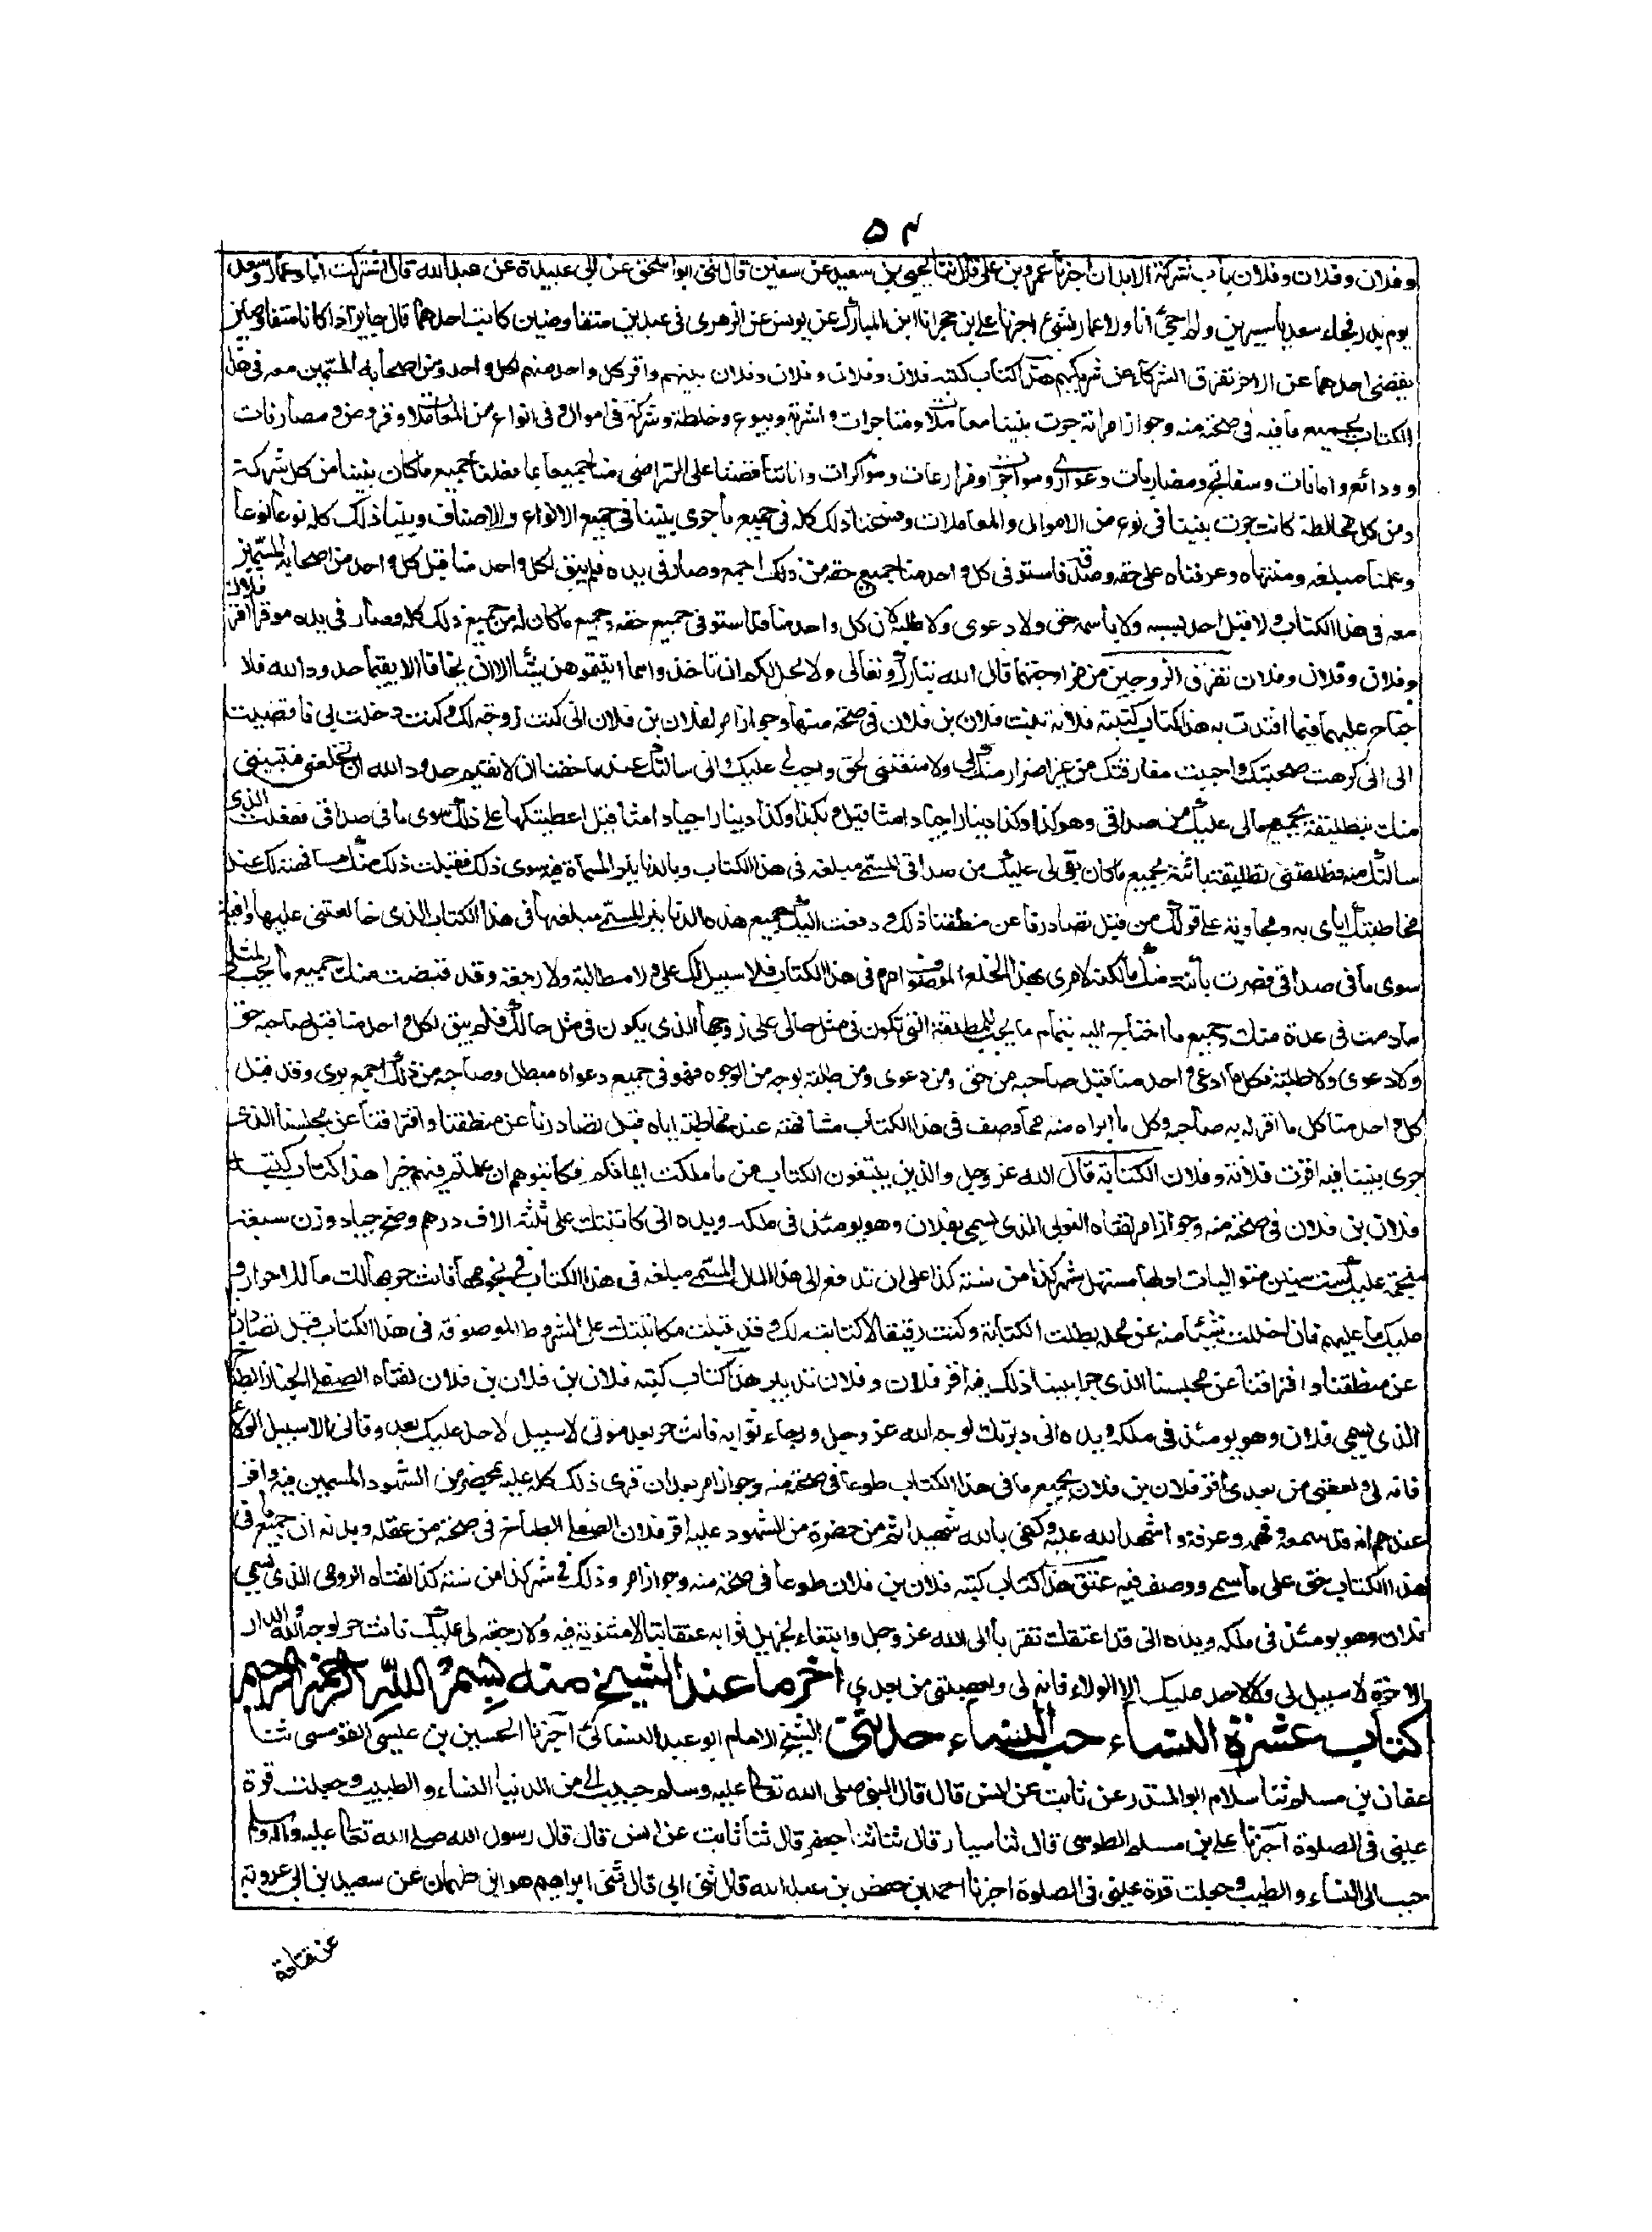 ٥٤
وفلان وفلان وفلان باب شركة الابدان اخبرنا عمرو بن علي قال ثنا يحيى بن سعيد عن سفين قال ثنى ابو اسحق عن ابي عبيدة عن عبد الله قال اشتركت انا وعمار وسعد
يوم بدر فجاء سعد باسيرين ولم اجئ انا ولا عمار بشئ اخبرنا علي بن حجر انا ابن المبارك عن يونس عن الزهري في عبدين متفاوضين كاتب احدهما قال جايز اذا كانا متفاوضين
يقضى احدهما عن الاخر تفرق الشركاء عن شريكهم هذا كتاب كتبه فلان وفلان وفلان وفلان بينهم واقر كل واحد منهم لكل واحد من اصحابه المسمين معه في هذا
الكتاب بجميع ما فيه في صحة منه وجواز امر انه جرت بيننا معاملات ومتاجرات واشرية وبيوع وخلطة وشركة في اموال وفي انواع من المعاملات وقروض ومصارفات
وودائع وامانات وسفاتج ومضاربات وعواري ومواجرات ومزارعات ومؤاكرات وانا تناقضنا على التراضي منا جميعا بما فعلنا جميع ما كان بيننا من كل شركة
ومن كل مخالطة كانت جرت بيننا في نوع من الاموال والمعاملات وفسخنا ذلك كله في جميع ما جرى بيننا في جميع الانواع والاصناف وبينا ذلك كله نوعا نوعا
وعلمنا مبلغه ومنتهاه وعرفناه على حقه وصدقه فاستوفى كل واحد منا جميع حقه من ذلك اجمع وصار في يده فلم يبق لكل واحد منا قبل كل واحد من اصحابه المسمين
معه في هذا الكتاب ولا قبل احد بسببه ولا باسمه حق ولا دعوى ولا طلبة لان كل واحد منا قد استوفى جميع حقه وجميع ما كان له من جميع ذلك كله وصار في يده موفرا اقر فلان
وفلان وفلان وفلان تفرق الزوجين من مزاوجتهما قال الله تبارك وتعالى ولا يحل لكم ان تاخذوا مما اتيتموهن شيئا الا ان يخافا الا يقيما حدود الله فلا
جناح عليهما فيما افتدت به هذا كتاب كتبته فلانة بنت فلان بن فلان في صحة منها وجواز امر لفلان بن فلان اني كنت زوجة لك وكنت دخلت بي فافضيت
الي اني كرهت صحبتك واحببت مفارقتك من غير اضرار منك بي ولا منعتني لحق واجب لي عليك واني سالتك عند ما خفنا ان لا نقيم حدود الله ان تخلعني فتبينني
منك بتطليقة بجميع مالي عليك من صداقي وهو كذا وكذا دينارا جيادا مثاقيل وبكذا وكذا دينارا جيادا مثاقيل اعطيتكها على ذلك سوى ما في صداقي ففعلت الذي
سالتك منه فطلقتني تطليقة بائنة بجميع ما كان بقي لي عليك من صداقي المسمى مبلغه في هذا الكتاب وبالدنانير المسماة فيه سوى ذلك فقبلت ذلك منك مشافهة لك عند
مخاطبتك اياي به ومجاوبة على قولك من قبل تصادرنا عن منطقنا ذلك ودفعت اليك جميع هذه الدنانير المسمى مبلغها في هذا الكتاب الذي خالعتني عليها وافية
سوى ما في صداقي فصرت بائنة منك مالكة لامري بهذا الخلع الموصوف امره في هذا الكتاب فلا سبيل لك علي ولا مطالبة ولا رجعة وقد قبضت منك جميع ما يجب لمثلي
ما دمت في عدة منك وجميع ما احتاج اليه بتمام ما يجب للمطلقة التي تكون في مثل حالي على زوجها الذي يكون في مثل حالك فلم يبق لكل واحد منا قبل صاحبه حق
ولا دعوى ولا طلبة فكل ما ادعى واحد منا قبل صاحبه من حق ومن دعوى ومن طلبة بوجه من الوجوه فهو في جميع دعواه مبطل وصاحبه من ذلك اجمع بري وقد قبل
كل واحد منا كل ما اقر له به صاحبه وكل ما ابراه منه مما وصف في هذا الكتاب مشافهة عند مخاطبته اياه قبل تصادرنا عن منطقنا وافتراقنا عن مجلسنا الذي
جرى بيننا فيه اقرت فلانة وفلان الكتابة قال الله عز وجل والذين يبتغون الكتاب مما ملكت ايمانكم فكاتبوهم ان علمتم فيهم خيرا هذا كتاب كتبه
فلان بن فلان في صحة منه وجواز امر لفتاه النوبي الذي يسمى بفلان وهو يومئذ في ملكه ويده اني كاتبتك على ثلثة الاف درهم وضح جياد وزن سبعة
منجمة عليك ست سنين متواليات اولها مستهل شهر كذا من سنة كذا على ان تدفع الي هذا المال المسمى مبلغه في هذا الكتاب في نجومها فانت حر بها لك ما للاحرار و
عليك ما عليهم فان اخللت شيئا منه عن محله بطلت الكتابة وكنت رقيقا لا كتابة لك وقد قبلت مكاتبتك على الشروط الموصوفة في هذا الكتاب قبل تصادرنا
عن منطقنا وافتراقنا عن مجلسنا الذي جرى بيننا ذلك فيه اقر فلان وفلان تدبير هذا كتاب كتبه فلان بن فلان بن فلان لفتاه الصقلي الخباز الطباخ
الذي يسمى فلان وهو يومئذ في ملكه ويده اني دبرتك لوجه الله عز وجل ورجاء ثوابه فانت حر بعد موتي لا سبيل لاحد عليك بعد وفاتي الا سبيل الولاء
فانه لي ولعقبي من بعدي اقر فلان بن فلان بجميع ما في هذا الكتاب طوعا في صحة منه وجواز امر بعد ان قرئ ذلك كله عليه بمحضر من الشهود المسمين فيه واقر
عندهم انه قد سمعه وفهمه وعرفه واشهد الله عليه وكفى بالله شهيدا ثم من حضره من الشهود عليه اقر فلان الصقلي الطباخ في صحة من عقله وبدنه ان جميع ما في
هذا الكتاب حق على ما سمي ووصف فيه عتق هذا كتاب كتبه فلان بن فلان طوعا في صحة منه وجواز امر وذلك في شهر كذا من سنة كذا لفتاه الرومي الذي يسمى
فلان وهو يومئذ في ملكه ويده اني قد اعتقتك تقربا الى الله عز وجل وابتغاء لجزيل ثوابه عتقا بتا لا مثنوية فيه ولا رجعة لي عليك فانت حر لوجه الله والدار
الاخرة لا سبيل لي ولا لاحد عليك الا الولاء فانه لي ولعصبتي من بعدي اخر ما عند الشيخ منه بسم الله الرحمن الرحيم
كتاب عشرة النساء حب النساء حدثني الشيخ الامام ابو عبد النسائي اخبرنا الحسين بن عيسى القومسي ثنا
عفان بن مسلم ثنا سلام ابو المنذر عن ثابت عن انس قال قال النبي صلى الله تعالى عليه وسلم حبب الي من الدنيا النساء والطيب وجعلت قرة
عيني في الصلوة اخبرنا علي بن مسلم الطوسي قال ثنا سيار قال ثنا جعفر قال ثنا ثابت عن انس قال قال رسول الله صلى الله تعالى عليه واله وسلم
حبب الي النساء والطيب وجعلت قرة عيني في الصلوة اخبرنا احمد بن حفص بن عبد الله قال ثنى ابي قال ثنى ابراهيم هو ابن طهمان عن سعيد بن ابي عروبة
عن قتادة